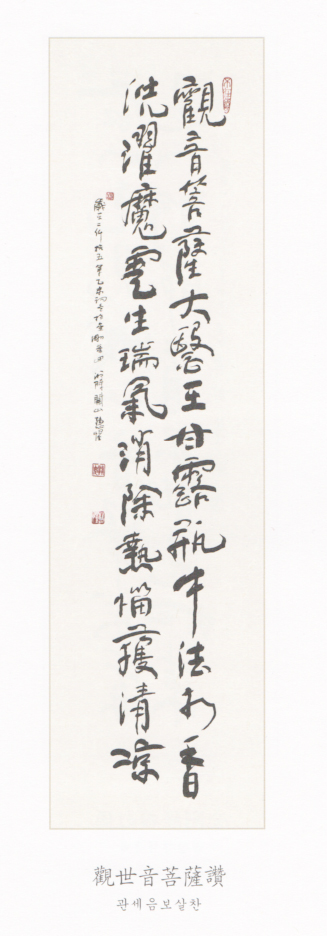 觀音菩薩大醫王甘露瓶中法水香
洗濯魔雲生瑞氣消除熱惱獲清涼
觀世音菩薩讚
관세음보살찬